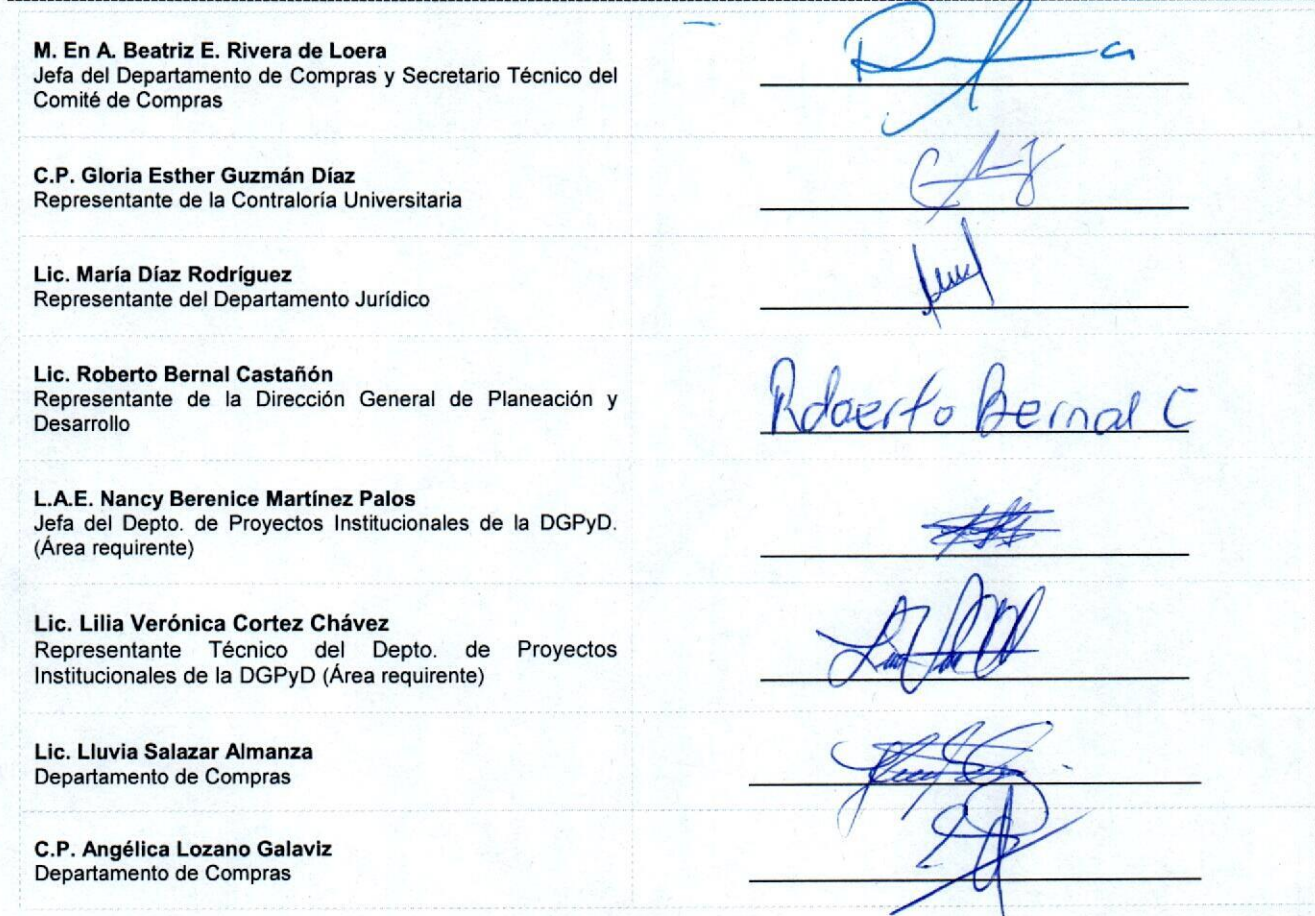 M. En A. Beatriz E. Rivera de Loera
Jefa del Departamento de Compras y Secretario Técnico del
Comité de Compras
C.P. Gloria Esther Guzmán Díaz
Representante de la Contraloría Universitaria
Lic. María Díaz Rodríguez
Representante del Departamento Jurídico
Lic. Roberto Bernal Castañón
Representante de la Dirección General de Planeación y
Desarrollo
Roberto Bernal C
L.A.E. Nancy Berenice Martínez Palos
Jefa del Depto. de Proyectos Institucionales de la DGPyD.
(Área requirente)
Lic. Lilia Verónica Cortez Chávez
Representante Técnico del Depto. de Proyectos
Institucionales de la DGPyD (Área requirente)
Lic. Lluvia Salazar Almanza
Departamento de Compras
C.P. Angélica Lozano Galaviz
Departamento de Compras